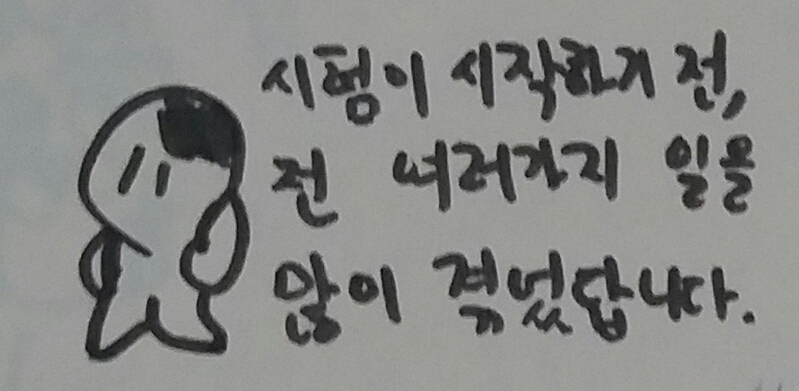 시험이 시작하기 전,
전 여러가지 일을
많이 겪었답니다.